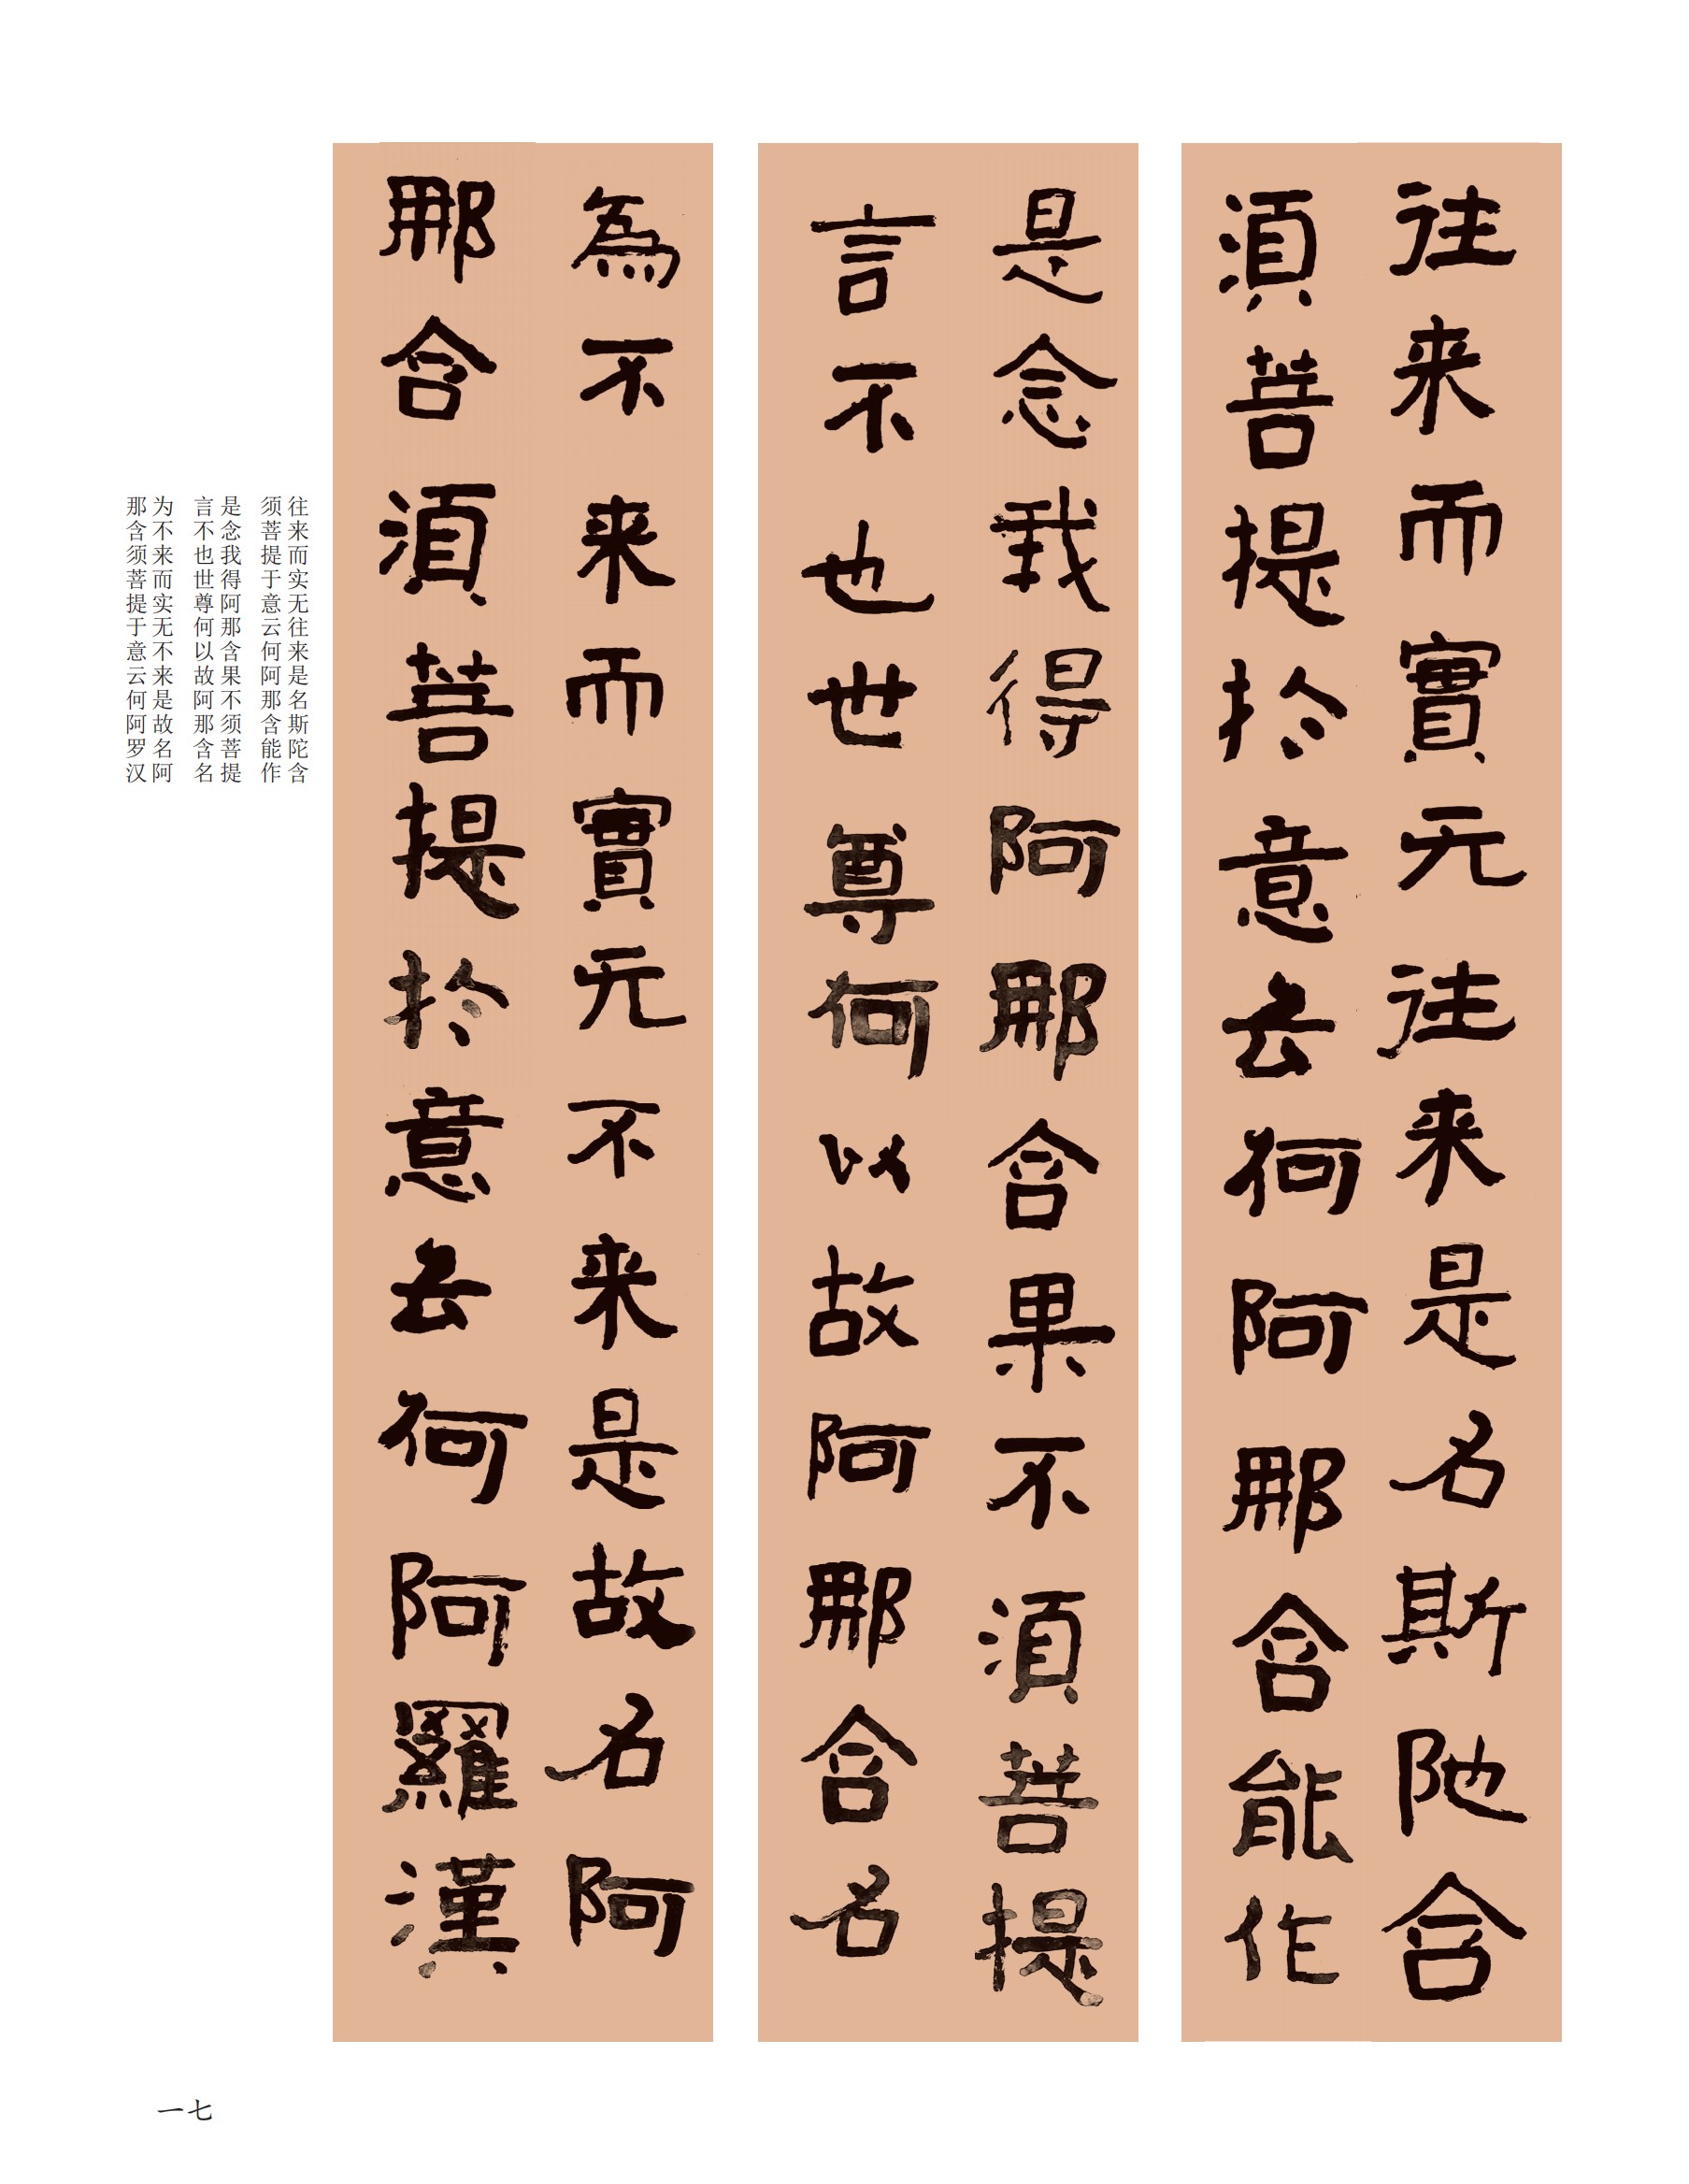 往来而實无往来是名斯陁含
須菩提於意云何阿那含能作
是念我得阿那含果不須菩提
言不也世尊何以故阿那含名
為不来而實无不来是故名阿
那含須菩提於意云何阿羅漢
往来而实无往来是名斯陀含
须菩提于意云何阿那含能作
是念我得阿那含果不须菩提
言不也世尊何以故阿那含名
为不来而实无不来是故名阿
那含须菩提于意云何阿罗汉
一七